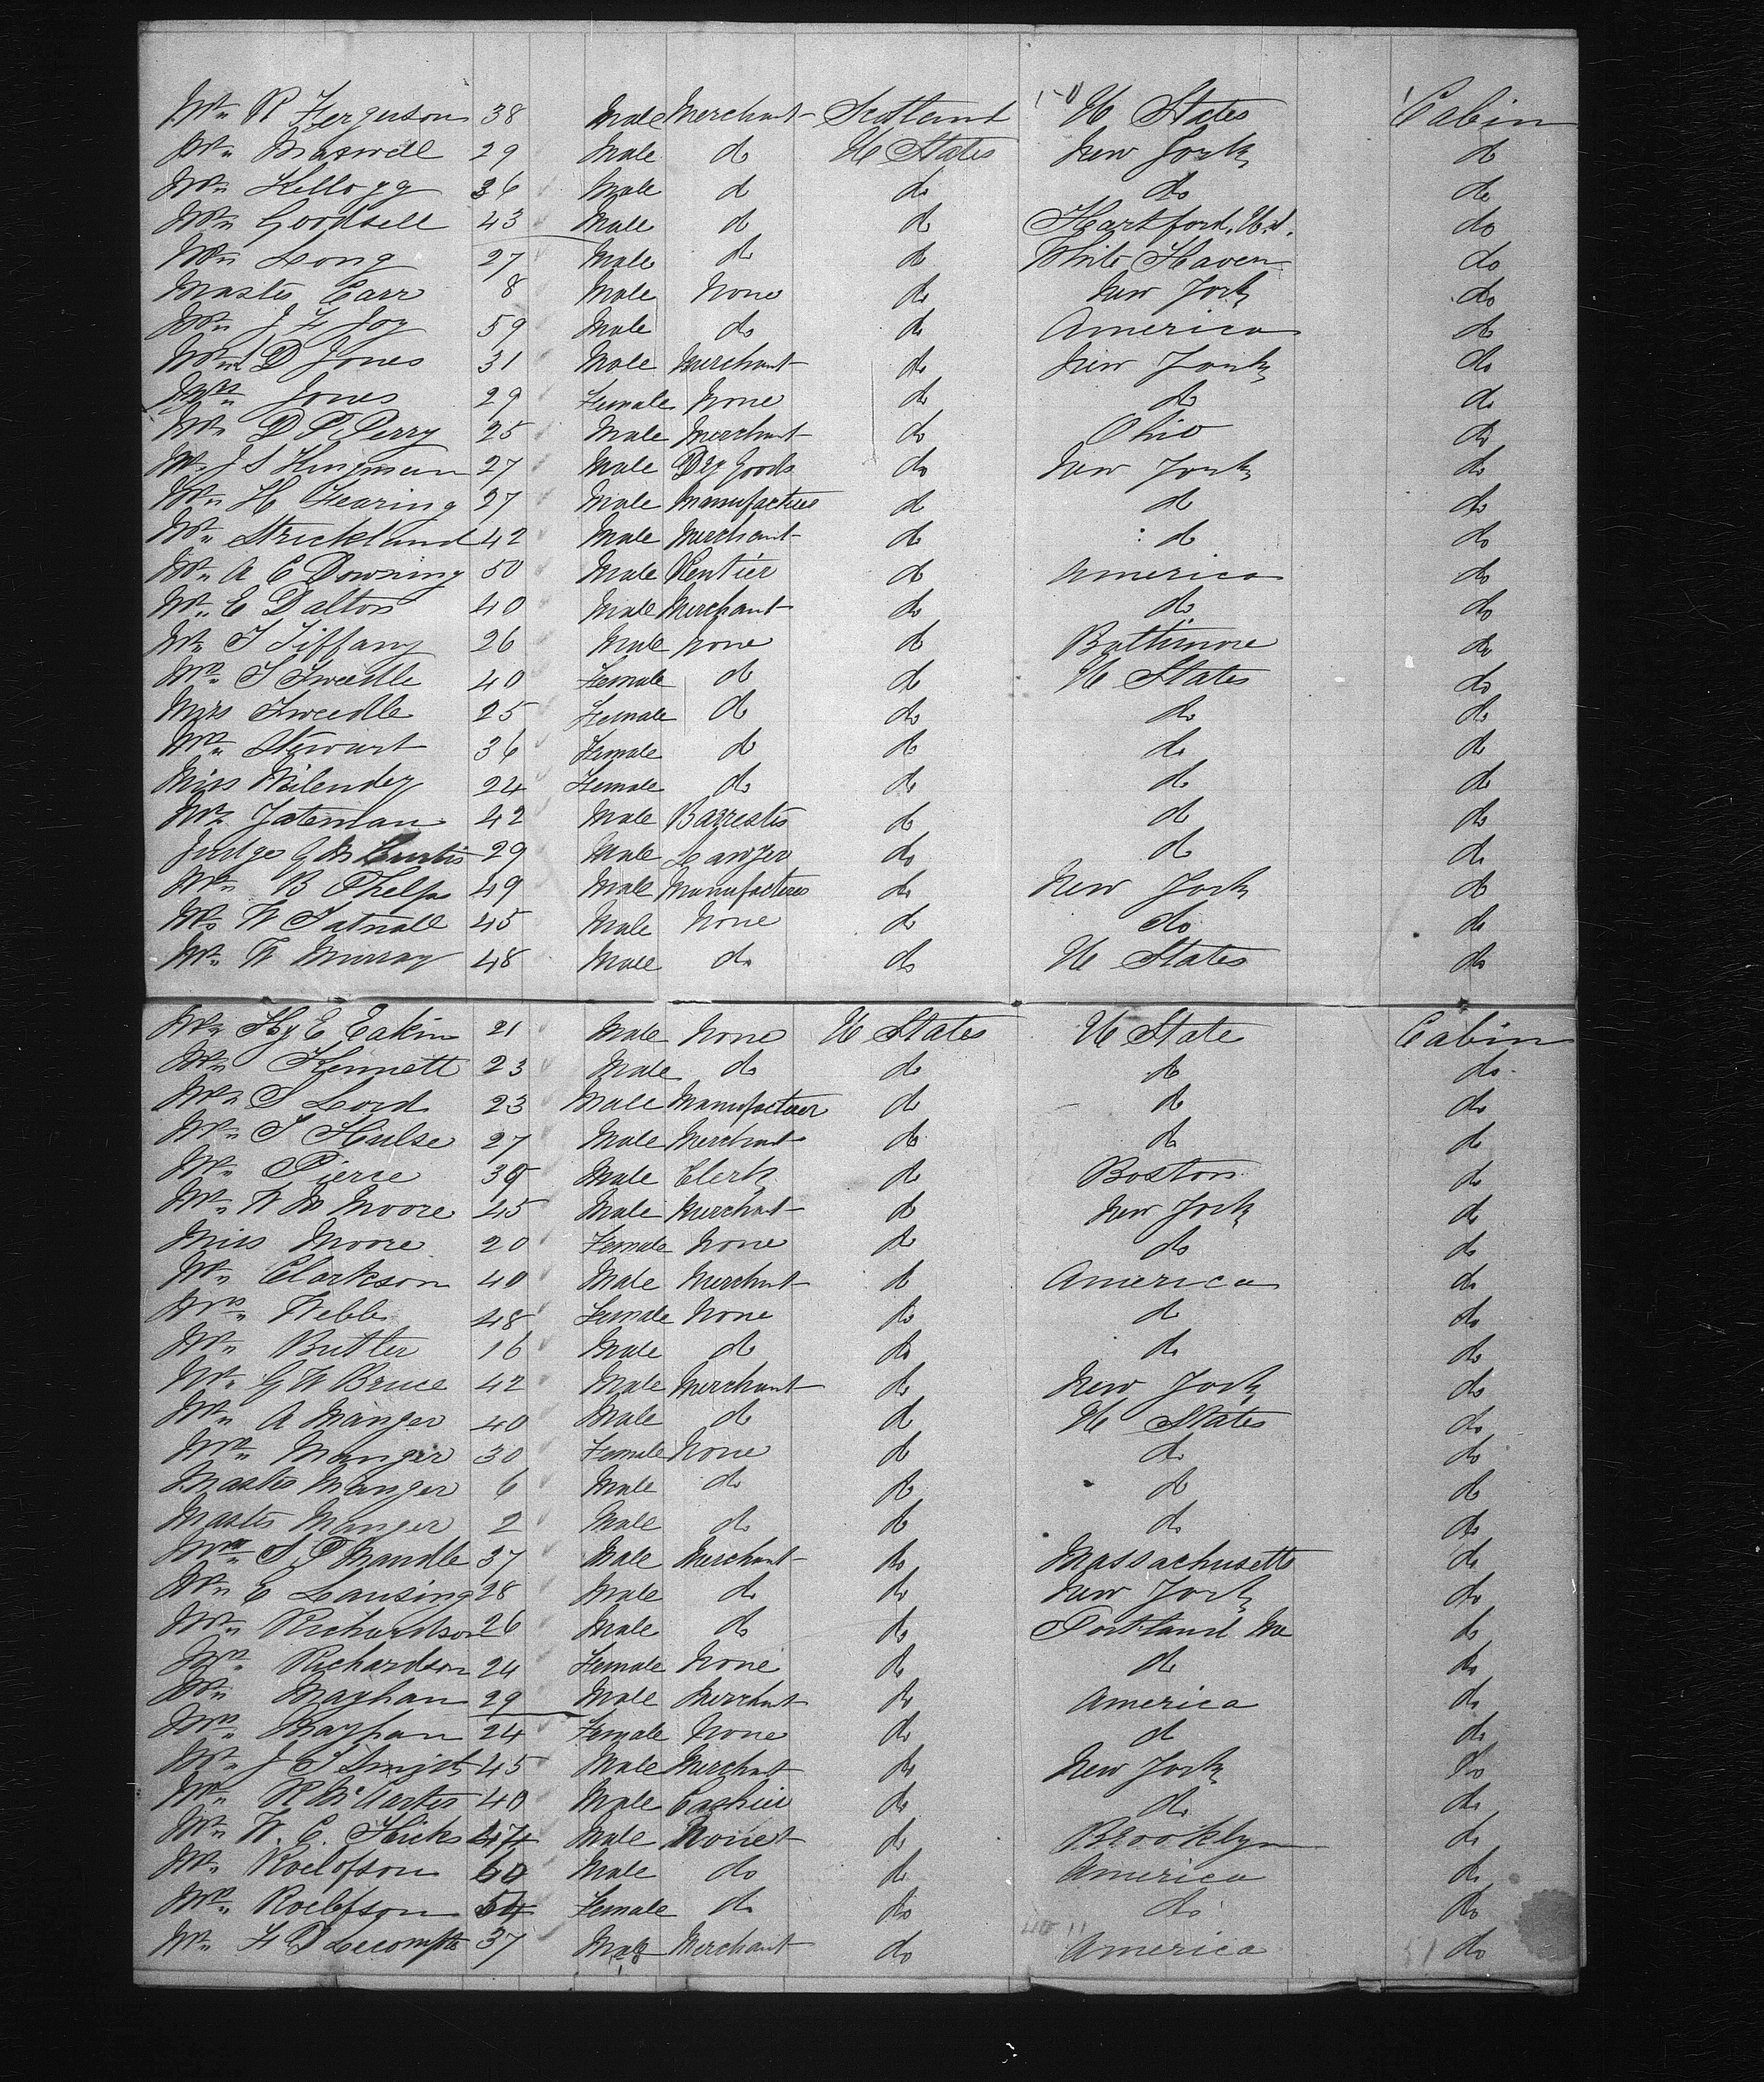 Mr R Ferguson 38 Male Merchant Scotland U States Cabin
Mr Maxwell 29 Male do U States New York do
Mr Kellogg 36 Male do do do do
Mr Goodsell 43 Male do do Heartford. U.S. do
Mr Long 27 Male do do White Haven do
Master Carr 8 Male None do New York do
Mr J F Joy 59 Male do do America do
Mr D Jones 31 Male Merchant do New York do
Mrs Jones 29 Female None do do do
Mr D P Perry 25 Male Merchant do Ohio do
Mr J S Hingman 27 Male Dry Goods do New York do
Mr H Fearing 27 Male Manufacturer do do do
Mr Strickland 42 Male Merchant do do do
Mr A C Downing 50 Male Rentier do America do
Mr E Dalton 40 Male Merchant do do do
Mr T Tiffany 26 Male None do Baltimore do
Mrs T Tweedle 40 Female do do U States do
Mrs Tweedle 25 Female do do do do
Mrs Stewart 36 Female do do do do
Miss 24 Female do do do do
Mr Yateman 42 Male Barrester do do do
Judge G M Curtis 29 Male Lawyer do do do
Mr B Phelps 49 Male Manufacturer do New York do
Mr W Tatnall 45 Male None do do do
Mr W Murray 48 Male do do U States do
Mr Hy E Eakin 21 Male None U States U State Cabin
Mr Kennett 23 Male do do do do
Mr S Lord 23 Male Manufacturer do do do
Mr T Hulse 27 Male Merchant do do do
Mr Pierce 39 Male Clerk do Boston do
Mr W M Moore 45 Male Merchant do New York do
Miss Moore 20 Female None do do do
Mr Clarkson 40 Male Merchant do America do
Mrs Webb 48 Female None do do do
Mr Butler 16 Male do do do do
Mr G W Bruce 42 Male Merchant do New York do
Mr A Manger 40 Male do do U States do
Mrs Manger 30 Female None do do do
Master Manger 6 Male do do do do
Master Manger 2 Male do do do do
Mr S P Mandle 37 Male Merchant do Massachusetts do
Mr E Lansing 28 Male do do New York do
Mr Richardson 26 Male do do Portland Me do
Mrs Richardson 24 Female None do do do
Mr Mayhan 29 Male Merchant do America do
Mrs Mayhan 24 Female None do do do
Mr J T Smyth 45 Male Merchant do New York do
Mr R McCarter 40 Male Cashier do do do
Mr W. C. Hicks 47 Male None do Brooklyn do
Mr Roelofson 60 Male do do America do
Mrs Roelofson 54 Female do do do do
Mr F D Lecompte 37 Male Merchant do America do